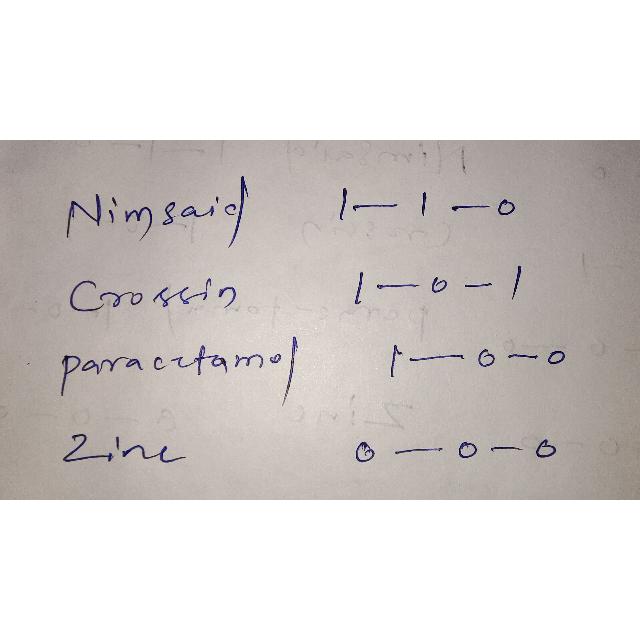 Nimsaid 1-1-0
Crossin 1-0-1
paracetamol 1-0-0
Zinc 0-0-0